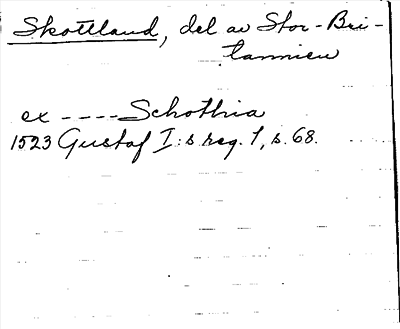 Skottland, del av Stor-Bri-
tannien
ex ---- Schothia
1523 Gustaf I:s reg. 1, s. 68.